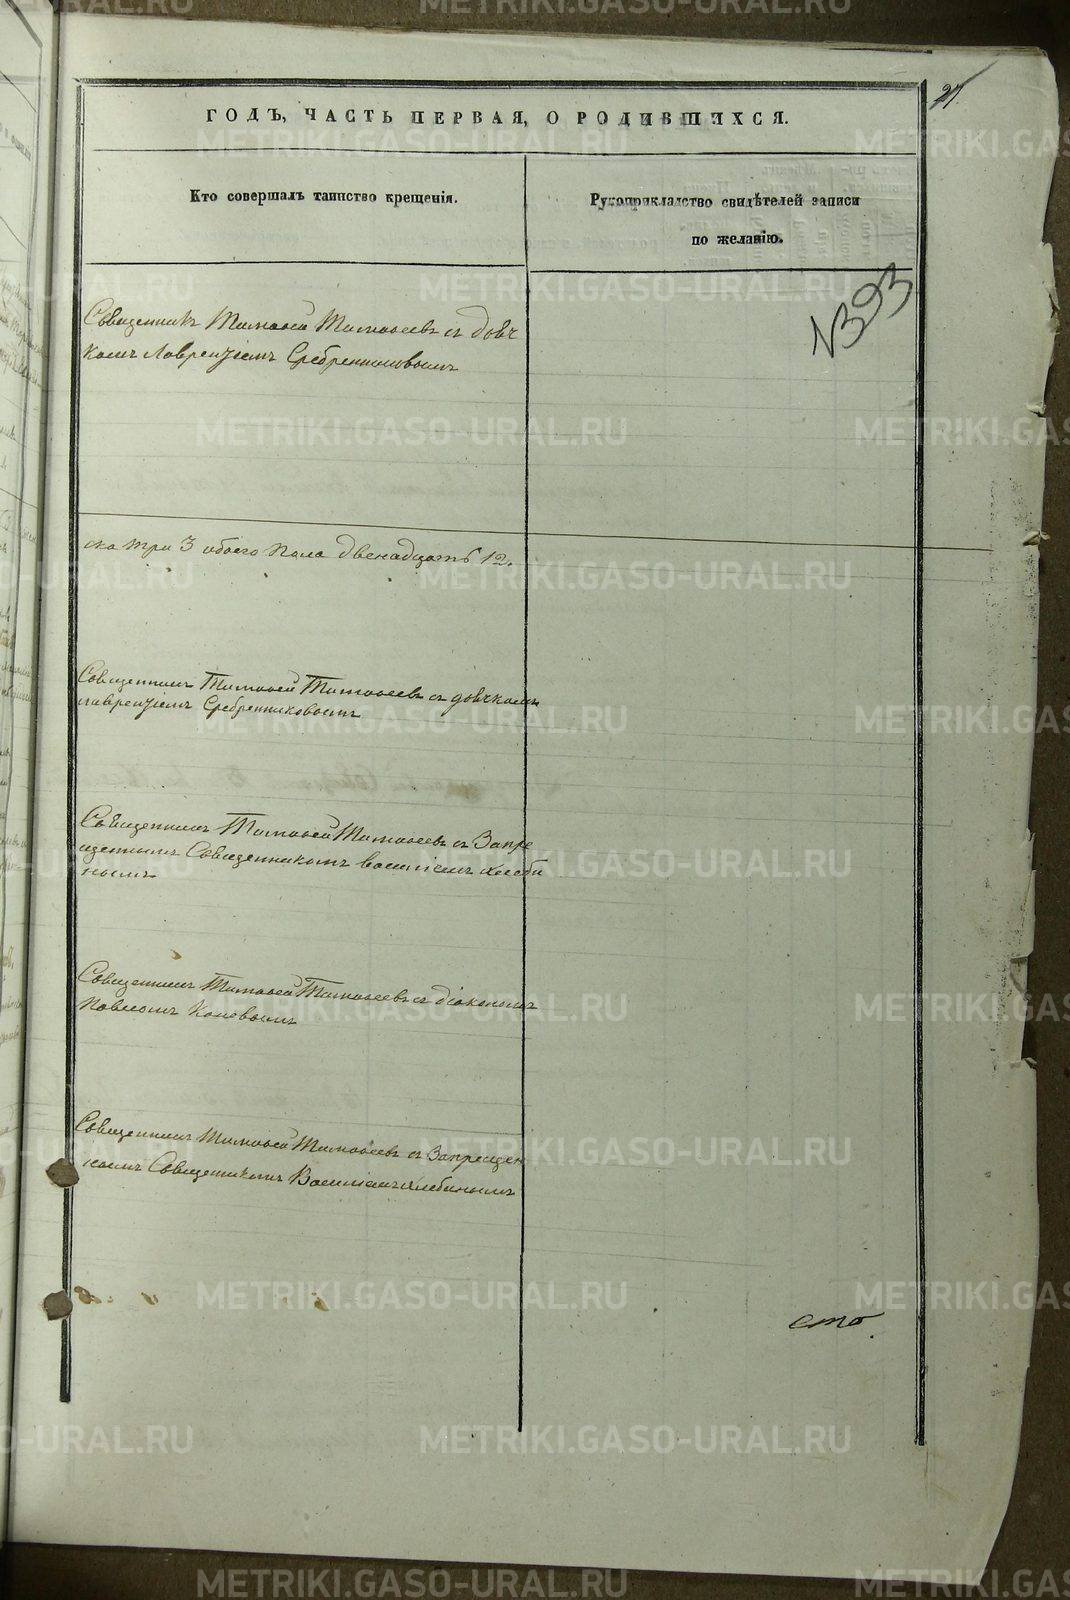 27.
ГОДЪ, ЧАСТЬ ПЕРВАЯ, О РОДИВШИХСЯ.
Кто совершалъ таинство крещенія.
Рукоприкладство свидѣтелей записи
по желанію.
Священникъ Тимоѳей Тимоѳеевъ съ дьяч
комъ Лаврентіемъ Сребренниковымъ
ска три 3 обоего пола двенадцать 12.
Священникъ Тимоѳей Тимоѳеевъ съ дьячкомъ
Лаврентіемъ Сребренниковымъ
Священникъ Тимоѳей Тимоѳеевъ съ Запре
щеннымъ Священникомъ Василіемъ Хлеби
нымъ
Священникъ Тимоѳей Тимоѳеевъ съ діакономъ
Павломъ Коневымъ
Священникъ Тимоѳей Тимоѳеевъ съ Запрещен
нымъ Священникомъ Василіемъ Хлебинымъ
METRIKI.GASO-URAL.RU